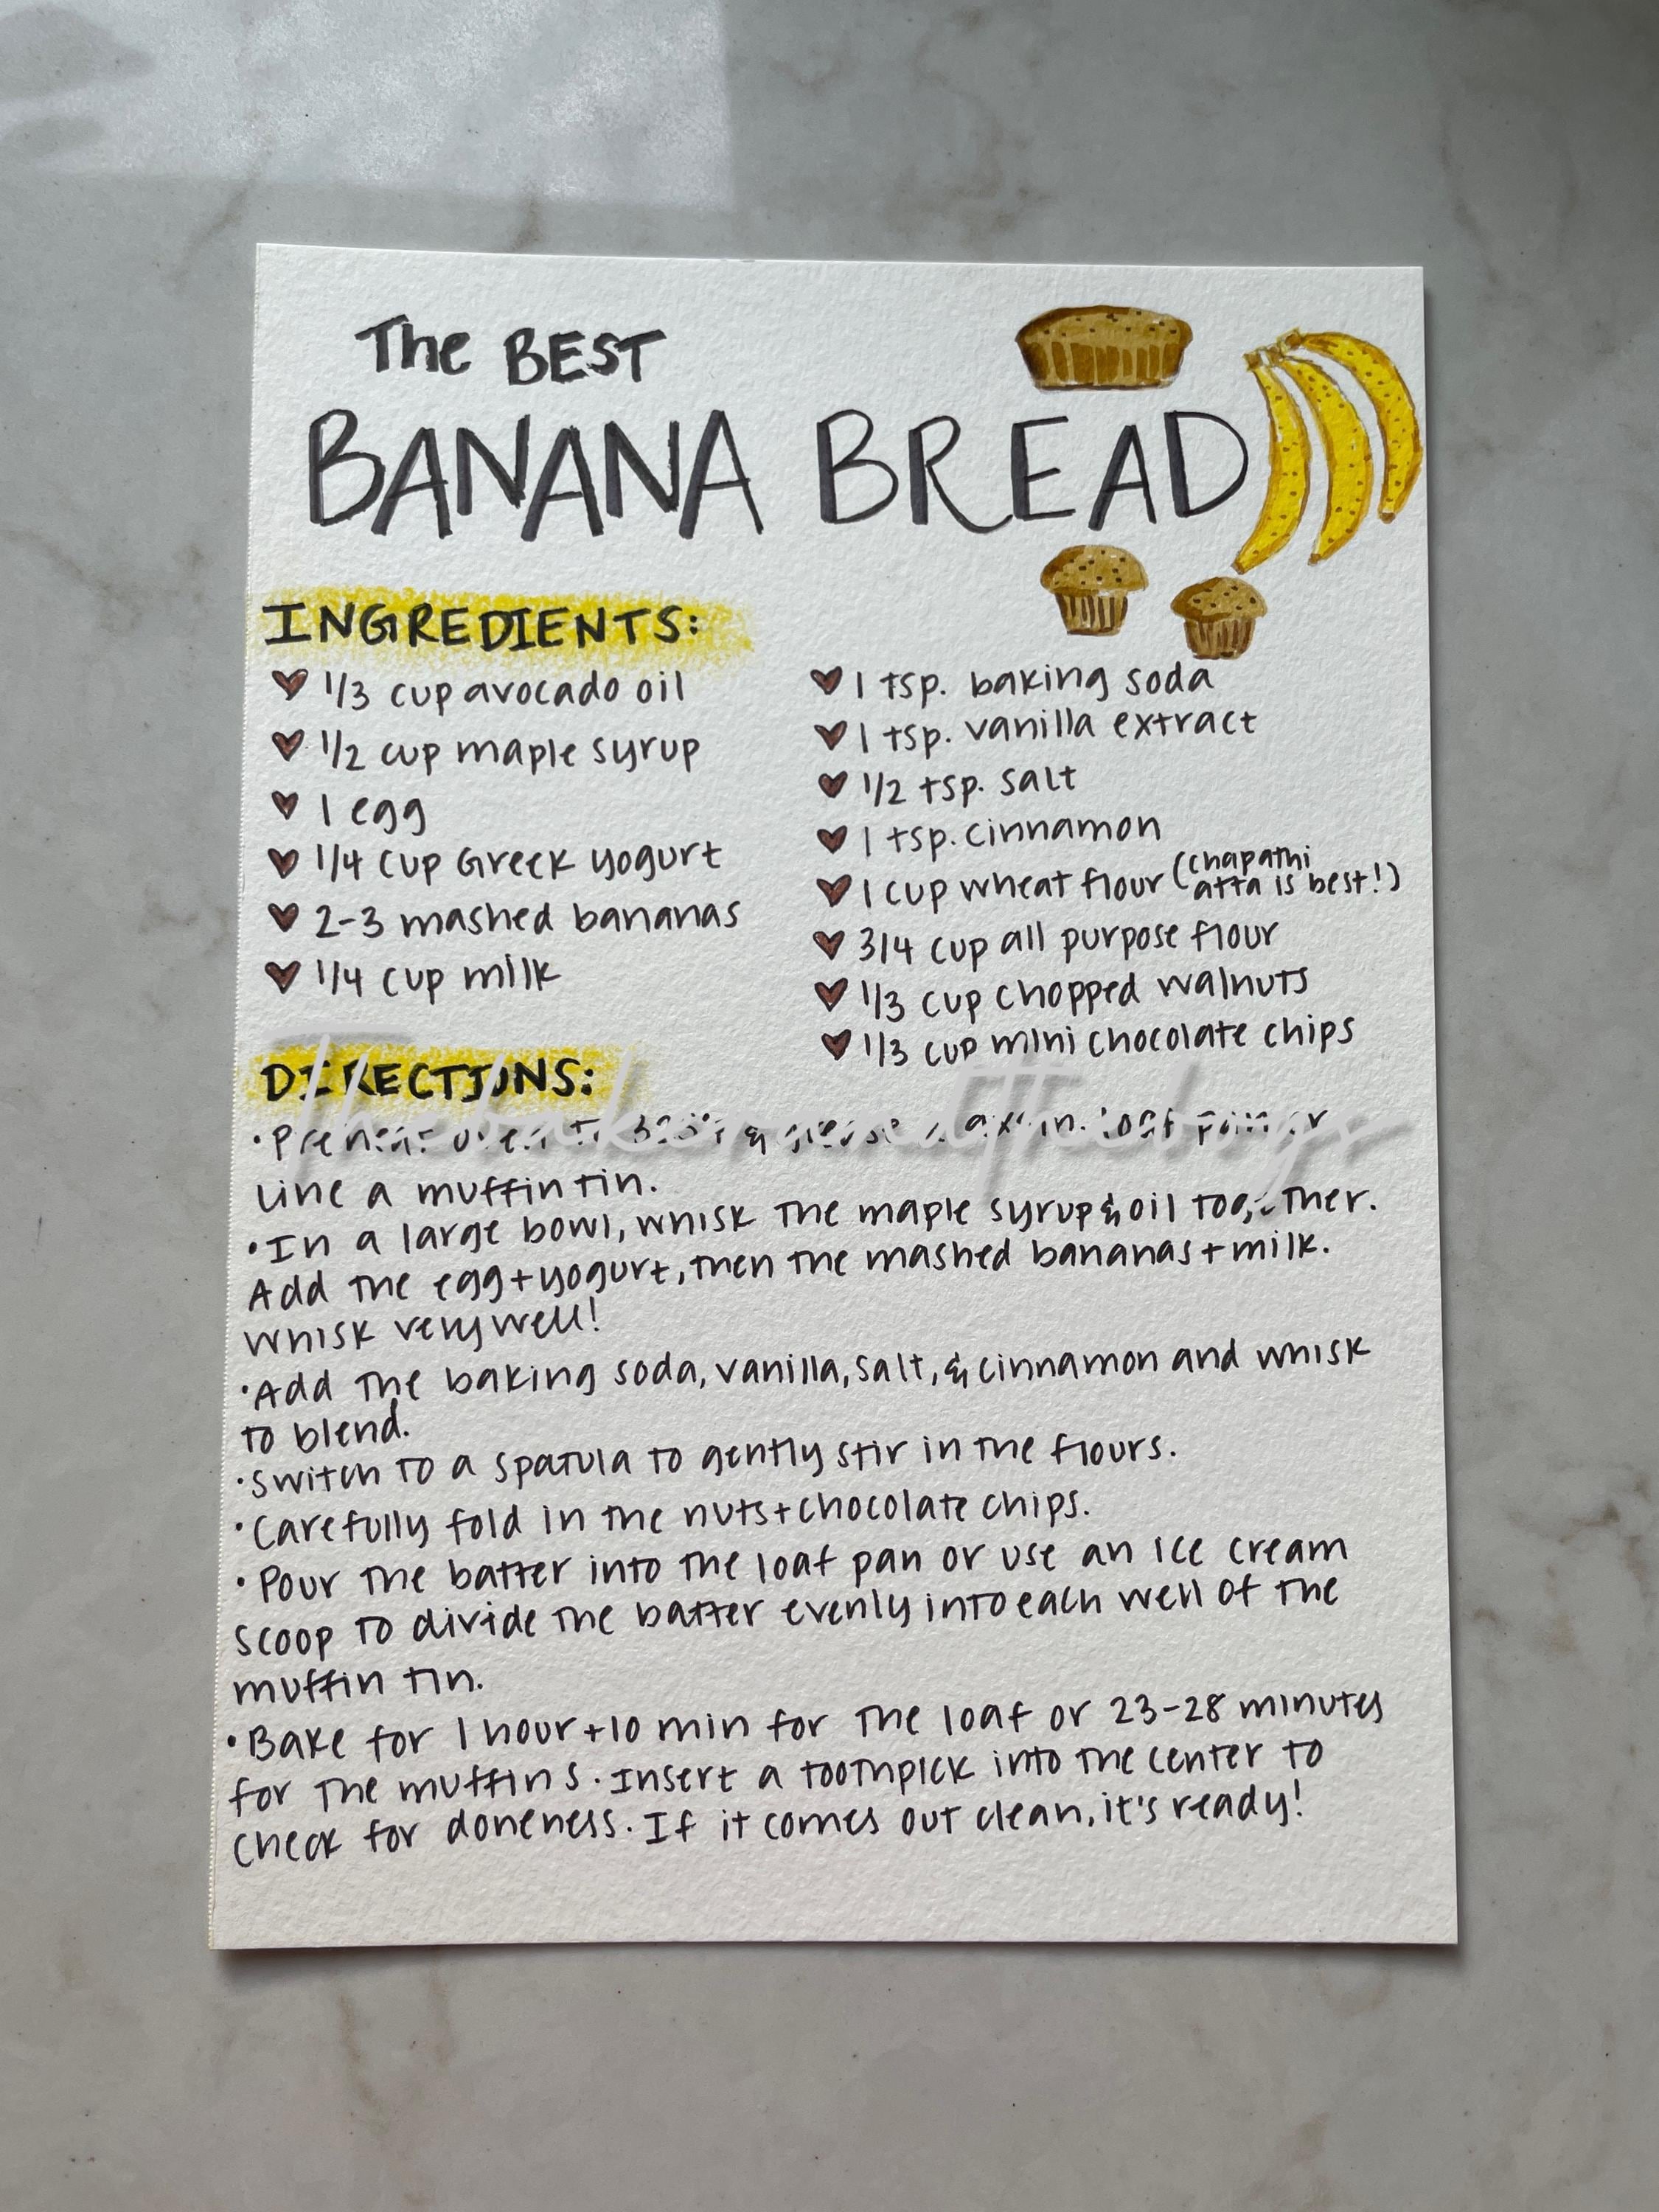 The BEST
BANANA BREAD
INGREDIENTS:
1/3 cup avocado oil
1/2 cup maple syrup
1 egg
1/4 cup Greek yogurt
2-3 mashed bananas
1/4 cup milk
1 tsp. baking soda
1 tsp. vanilla extract
1/2 tsp. salt
1 tsp. cinnamon
1 cup wheat flour (chapathi
atta is best!)
3/4 cup all purpose flour
1/3 cup chopped walnuts
1/3 cup mini chocolate chips
DIRECTIONS:
• Preheat oven to & grease a in. loaf pan or
line a muffin tin.
• In a large bowl, whisk the maple syrup & oil together.
Add the egg + yogurt, then the mashed bananas + milk.
Whisk very well!
• Add the baking soda, vanilla, salt, & cinnamon and whisk
to blend.
• Switch to a spatula to gently stir in the flours.
• Carefully fold in the nuts + chocolate chips.
• Pour the batter into the loaf pan or use an ice cream
scoop to divide the batter evenly into each well of the
muffin tin.
• Bake for 1 hour + 10 min for the loaf or 23-28 minutes
for the muffins. Insert a toothpick into the center to
check for doneness. If it comes out clean, it's ready!